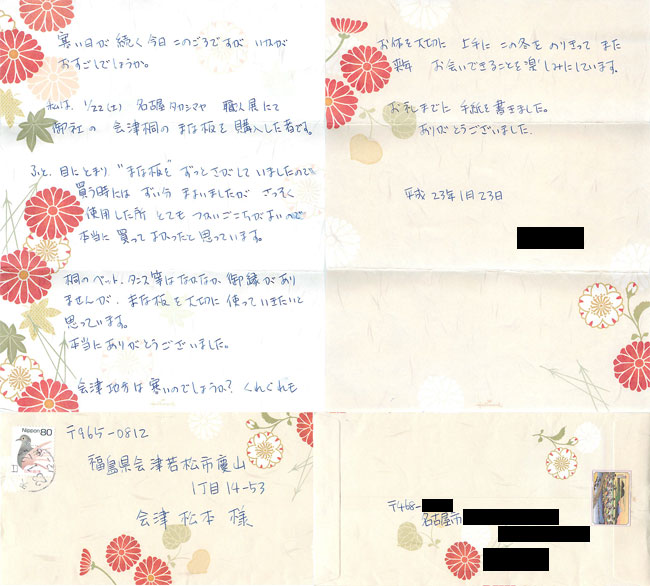 寒い日が続く今日このごろですが いかが
おすごしでしょうか。
私は、1/22(土) 名古屋タカシマヤ 職人展にて
御社の 会津桐の まな板を購入した者です。
ふと、目にとまり "まな板を" ずっとさがしていましたので
買う時には ずい分 まよいましたが さっそく
使用した所 とても つかいごこちがよいので
本当に 買ってよかったと思っています。
桐のベット、タンス等はなかなか 御縁があり
ませんが、まな板を大切に 使っていきたいと
思っています。
本当にありがとうございました。
会津地方は寒いのでしょうか? くれぐれも
お体を大切に 上手に この冬を のりきって また
来年 お会いできることを楽しみにしています。
お礼までに 手紙を書きました。
ありがとうございました。
平成 23年1月23日
Nippon 80
〒965-0812
福島県会津若松市慶山
1丁目14-53
会津 松本 様
〒468-
名古屋市